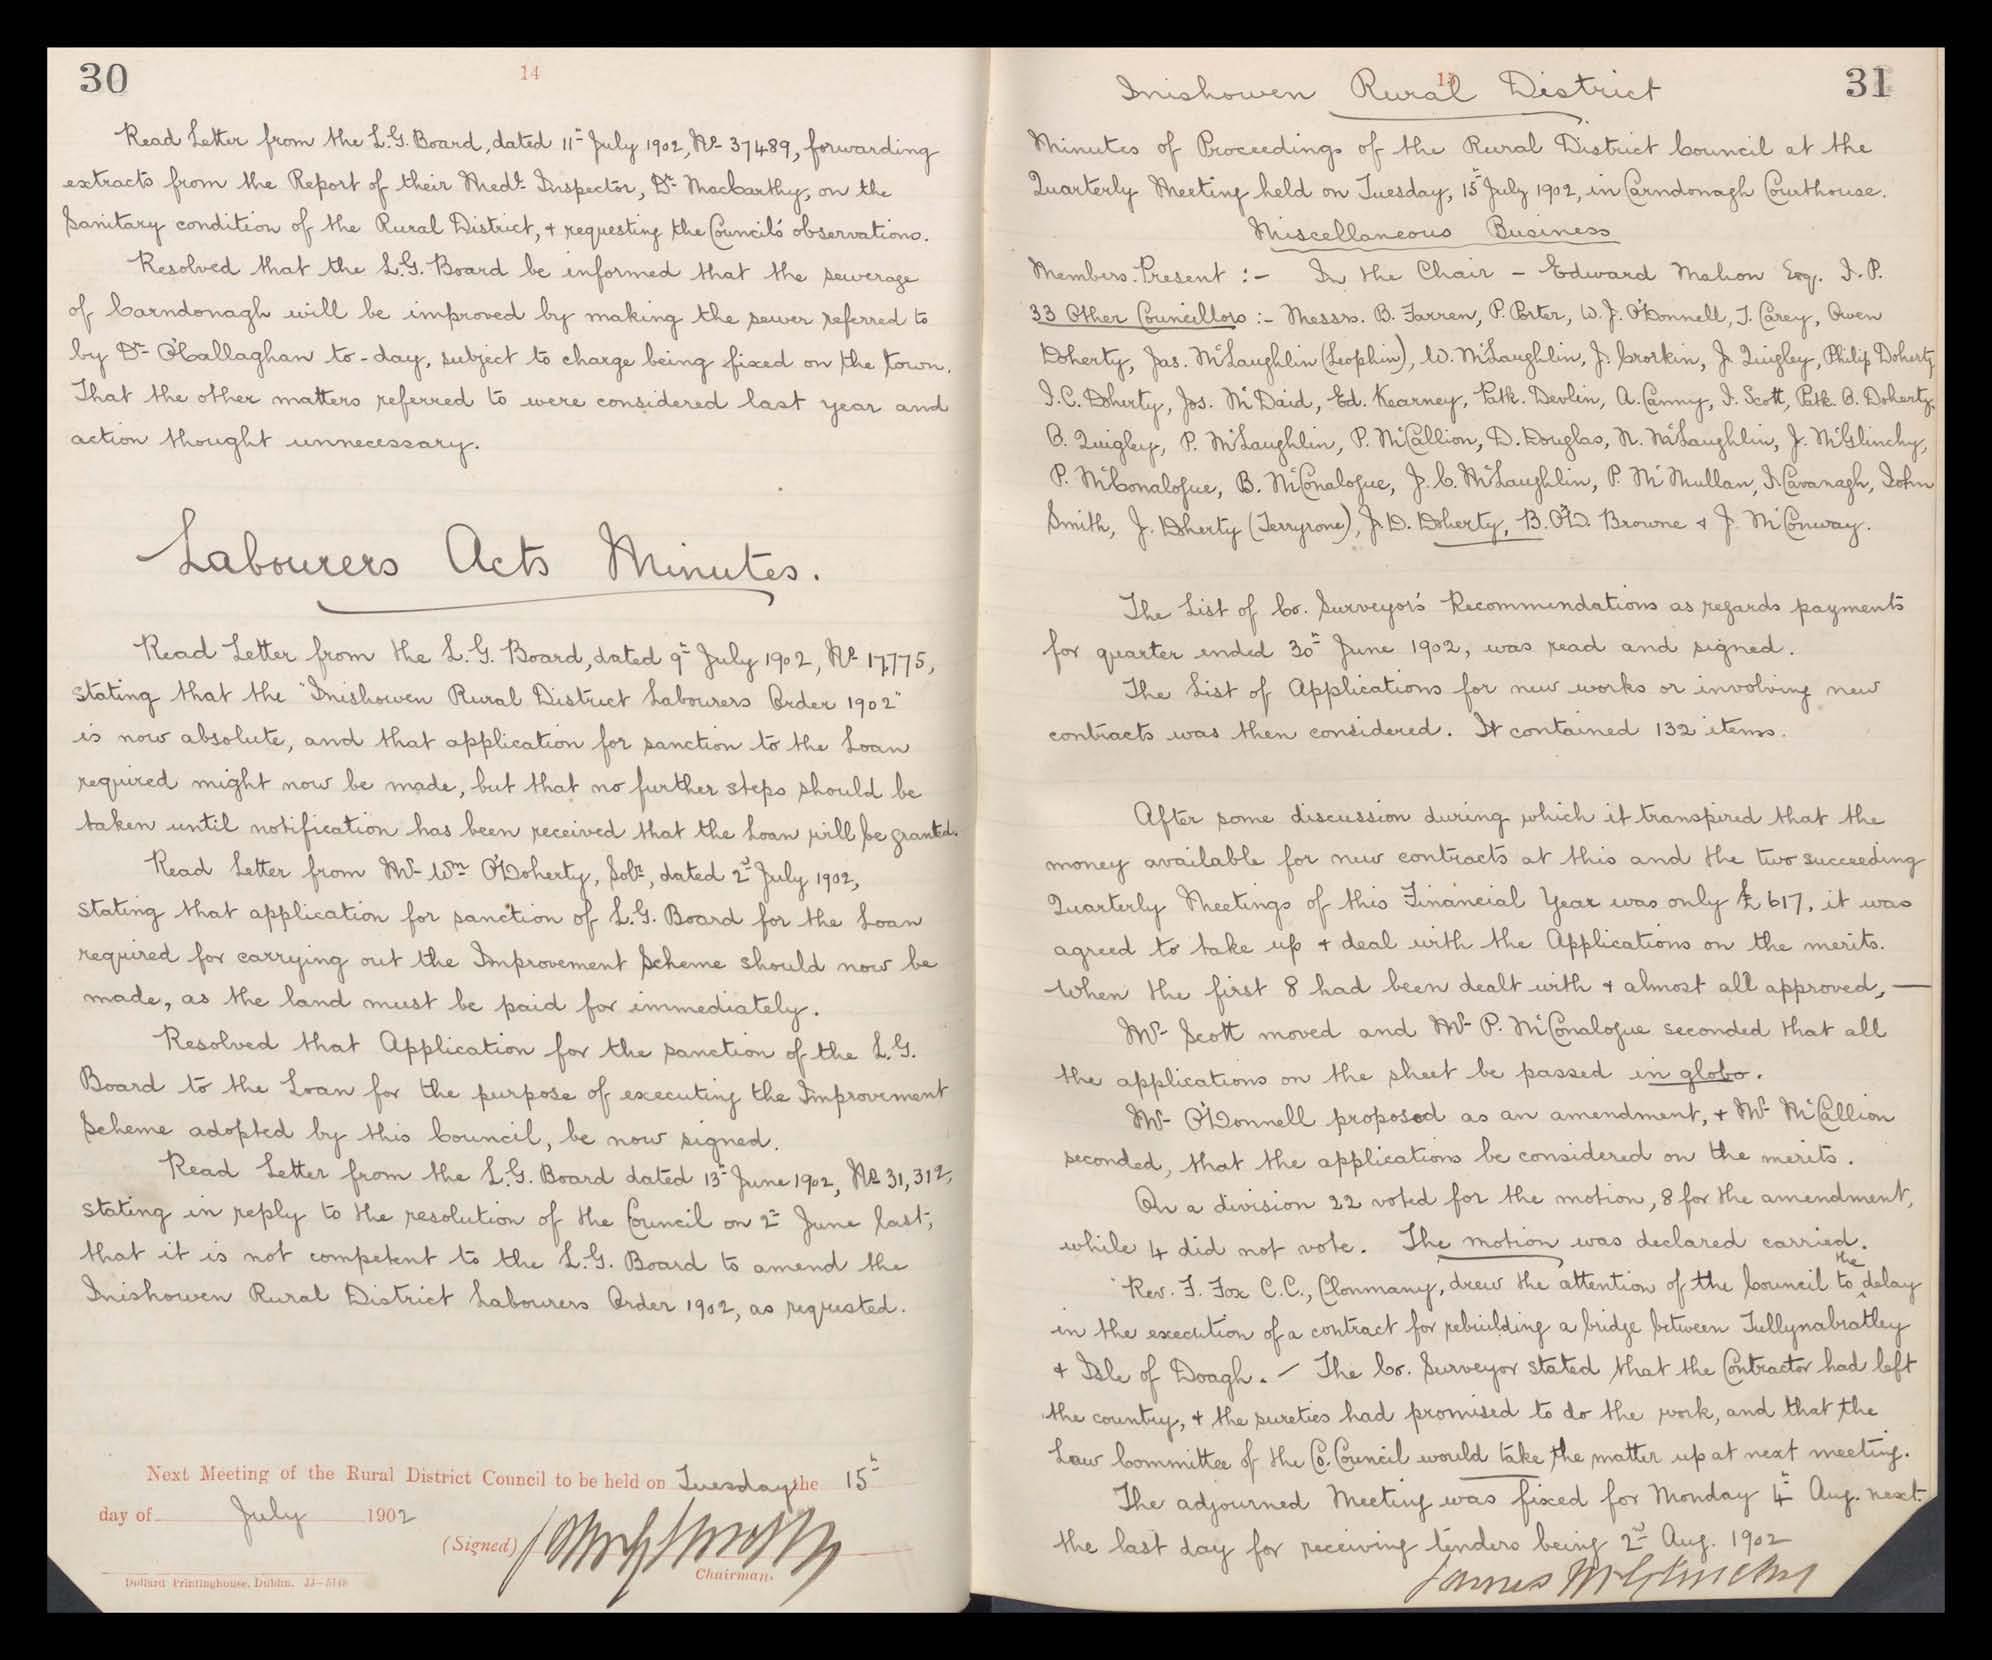 30
14
Read Letter from the L.G. Board, dated 11th July 1902, No 37489, forwarding
extracts from the Report of their Medl. Inspector, Dr. MacCarthy, on the
Sanitary condition of the Rural District, + requesting the Council's observations.
Resolved that the L.G. Board be informed that the sewerage
of Carndonagh will be improved by making the sewer referred to
by Dr. O'Callaghan to-day, subject to charge being fixed on the town.
That the other matters referred to were considered last year and
action thought unnecessary.
Labourers Acts Minutes.
Read Letter from the L.G. Board, dated 9th July 1902, No 17,775,
stating that the "Inishowen Rural District Labourers Order 1902"
is now absolute, and that application for sanction to the Loan
required might now be made, but that no further steps should be
taken until notification has been received that the Loan will be granted.
Read Letter from Mr. Wm. O'Doherty, Solr., dated 2nd July 1902,
stating that application for sanction of L.G. Board for the Loan
required for carrying out the Improvement Scheme should now be
made, as the land must be paid for immediately.
Resolved that Application for the sanction of the L.G.
Board to the Loan for the purpose of executing the Improvement
Scheme adopted by this Council, be now signed.
Read Letter from the L.G. Board dated 13th June 1902, No 31,312,
stating in reply to the resolution of the Council on 2nd June last,
that it is not competent to the L.G. Board to amend the
Inishowen Rural District Labourers Order 1902, as requested.
Next Meeting of the Rural District Council to be held on Tuesday the 15th
day of July 1902
(Signed)
Chairman.
Dollard Printinghouse, Dublin.
31
15
Inishowen Rural District
Minutes of Proceedings of the Rural District Council at the
Quarterly Meeting held on Tuesday, 15th July 1902, in Carndonagh Courthouse.
Miscellaneous Business
Members Present :- In the Chair - Edward Mahon Esq. J.P.
33 Other Councillors :- Messrs. B. Farren, P. Porter, W.J. O'Donnell, T. Carey, Owen
Doherty, Jas. McLaughlin (Leophin), W. McLaughlin, J. Crorkin, J. Quigley, Philip Doherty,
J.C. Doherty, Jos. McDaid, Ed. Kearney, Patk. Devlin, A. Canny, J. Scott, Patk. O. Doherty,
O. Quigley, P. McLaughlin, P. McCallion, D. Douglas, N. McLaughlin, J. McGlinchy,
P. McConalogue, B. McConalogue, J.C. McLaughlin, P. McMullan, J. Cavanagh, John
Smith, J. Doherty (Terryrone), J.D. Doherty, B. O'D. Browne + J. McConway.
The List of Co. Surveyor's Recommendations as regards payments
for quarter ended 30th June 1902, was read and signed.
The List of Applications for new works or involving new
contracts was then considered. It contained 132 items.
After some discussion during which it transpired that the
money available for new contracts at this and the two succeeding
Quarterly Meetings of this Financial Year was only £617, it was
agreed to take up + deal with the Applications on the merits.
When the first 8 had been dealt with + almost all approved, —
Mr. Scott moved and Mr. P. McConalogue seconded that all
the applications on the sheet be passed in globo.
Mr. O'Donnell proposed as an amendment, + Mr. McCallion
seconded, that the applications be considered on the merits.
On a division 22 voted for the motion, 8 for the amendment,
while 4 did not vote. The motion was declared carried.
Rev. F. Fox C.C., Clonmany, drew the attention of the Council to the delay
in the execution of a contract for rebuilding a bridge between Tullynabratley
+ Isle of Doagh. — The Co. Surveyor stated that the Contractor had left
the country, + the sureties had promised to do the work, and that the
Law Committee of the Co. Council would take the matter up at next meeting.
The adjourned Meeting was fixed for Monday 4th Aug. next.
the last day for receiving tenders being 2nd Aug. 1902
James McGlinchy